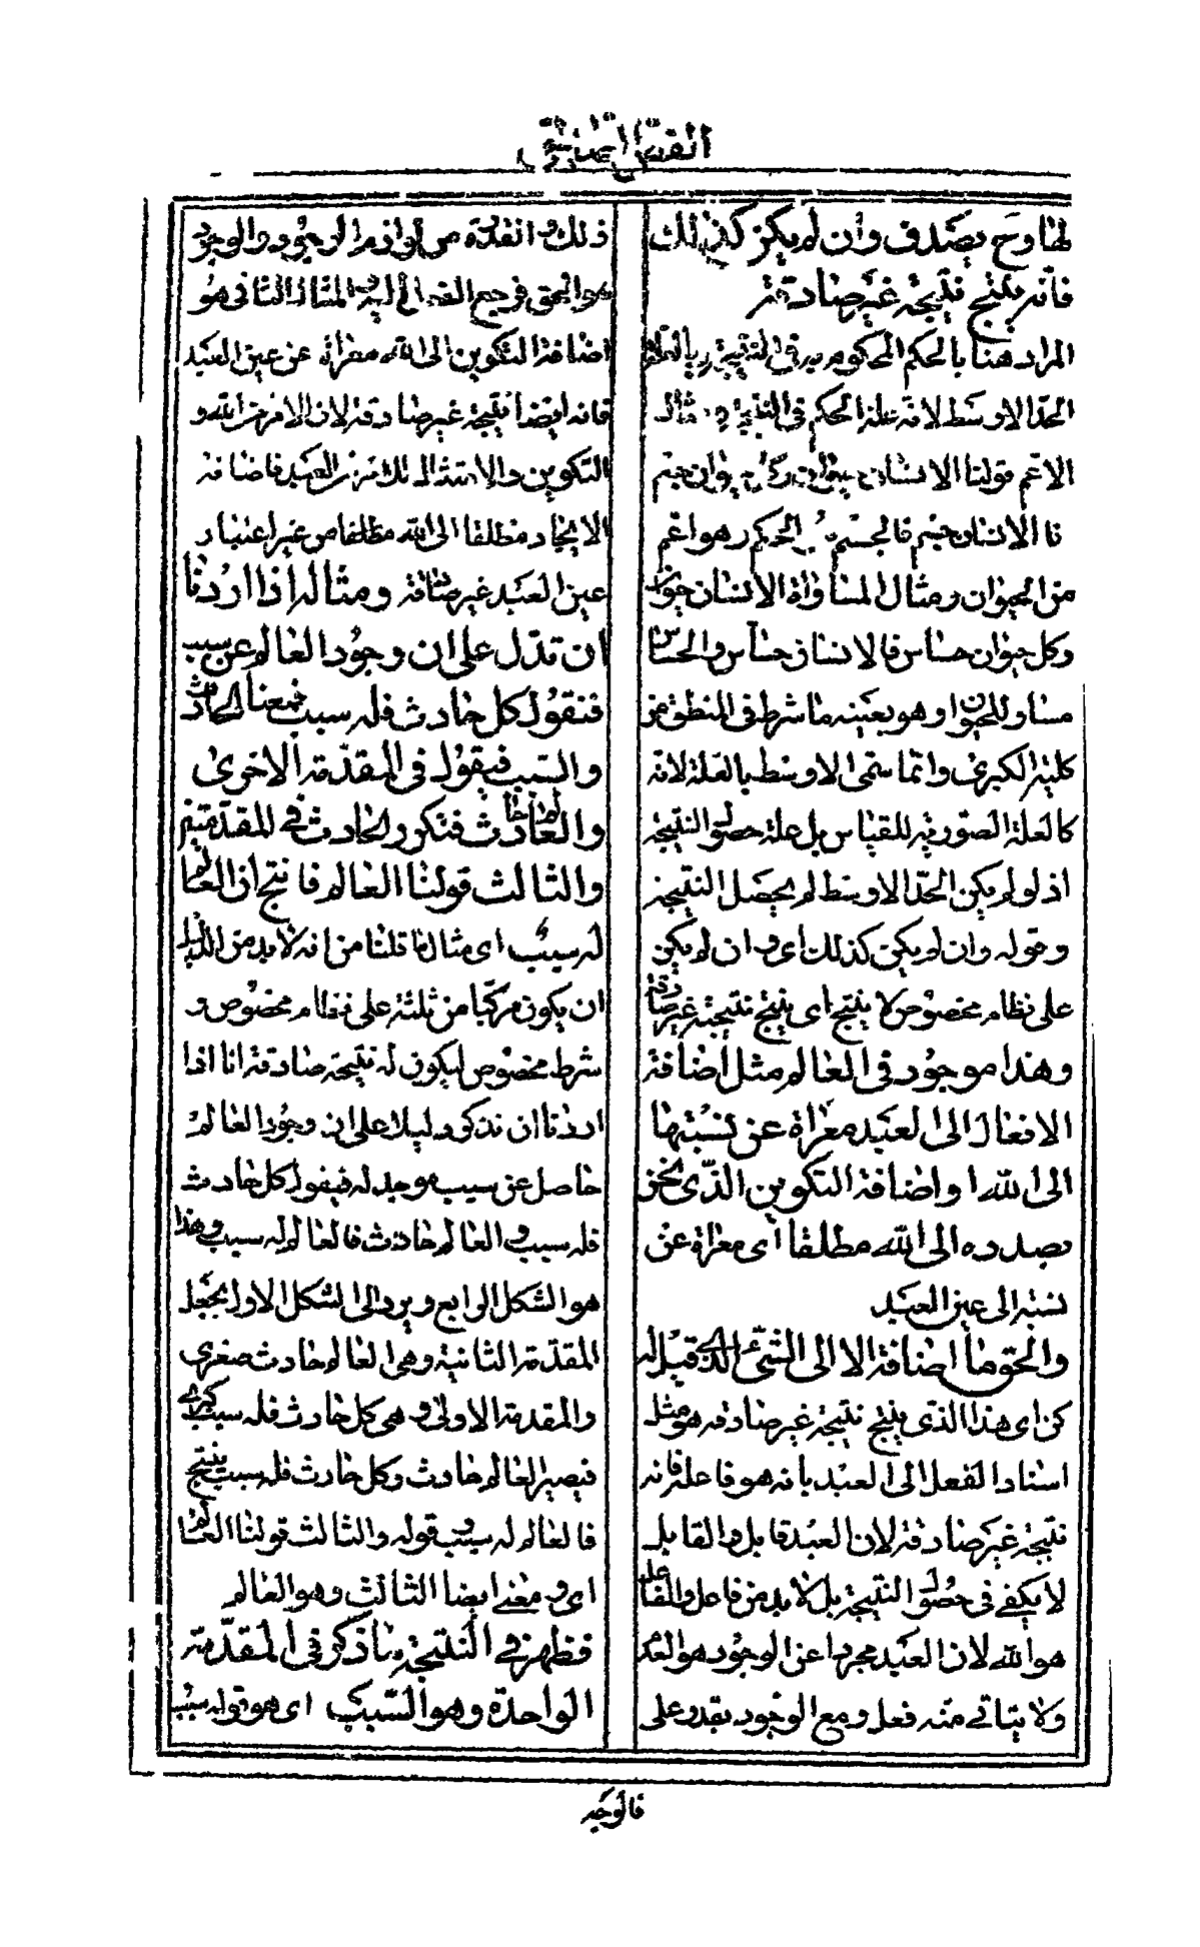 الفص الصالحي
لها وح يصدق وان لم يكن كذلك
فانه ينتج نتيجة غير صادقة
المراد هنا بالحكم المحكوم به في النتيجة وبالعلة
الحد الاوسط لانه علة الحكم في النتيجة مثال
الاعم قولنا الانسان حيوان وكل حيوان جسم
فالانسان جسم فالجسم هو الحكم وهو اعم
من الحيوان ومثال المساواة الانسان حيوان
وكل حيوان حساس فالانسان حساس والحساس
مساو للحيوان وهو بعينه ما شرط في المنطق من
كلية الكبرى وانما سمى الاوسط بالعلة لانه
كالعلة الصورية للقياس بل علة حصول النتيجة
اذ لو لم يكن الحد الاوسط لم يحصل النتيجة
وقوله وان لم يكن كذلك اى وان لم يكن
على نظام مخصوص لا ينتج اى ينتج نتيجة غير صادقة
وهذا موجود في العالم مثل اضافة
الافعال الى العبد معراة عن نسبتها
الى الله او اضافة التكوين الذى نحن
بصدده الى الله مطلقا اى معراة عن
نسبته الى عين العبد
والحق ما اضافه الا الى الشئ الذى قيل له
كن اى هذا الذى ينتج نتيجة غير صادقه هو مثل
اسناد الفعل الى العبد بانه هو فاعله فانه
نتيجة غير صادقة لان العبد قابل والقابل
لا يكفى في حصول النتيجة بل لا بد من فاعل والفاعل
هو الله لان العبد مجردا عن الوجود هو العدم
ولا يتاتى منه فعل ومع الوجود يقدر على
ذلك والقدرة من لوازم الوجود والوجود
هو الحق فرجع الفعل اليه والمثال الثانى هو
اضافة التكوين الى الله معراة عن عين العبد
فانه ايضا نتيجة غير صادقة لان الامر من الله و
التكوين والامتثال لذلك من العبد فاضافة
الايجاد مطلقا الى الله مطلقا من غير اعتبار
عين العبد غير صادقة ومثاله اذا اردنا
ان ندل على ان وجود العالم عن سبب
فنقول كل حادث فله سبب فمعنا الحادث
والسبب فيقول في المقدمة الاخرى
والعالم حادث فتكرر الحادث في المقدمتين
والثالث قولنا العالم فانتج ان العالم
له سبب اى مثال ما قلنا من انه لا بد من الدليل
ان يكون مركبا من ثلثة على نظام مخصوص و
شرط مخصوص ليكون له نتيجة صادقة انا اذا
اردنا ان نذكر دليلا على ان وجود العالم
حاصل عن سبب موجد له فيقول كل حادث
فله سبب و العالم حادث فالعالم له سبب وهذا
هو الشكل الرابع ويرد الى الشكل الاول بجعل
المقدمة الثانية وهى العالم حادث صغرى
والمقدمة الاولى و هى كل حادث فله سبب كبرى
فيصير العالم حادث وكل حادث فله سبب ينتج
فالعالم له سبب و قوله والثالث قولنا العالم
اى و معنى ايضا الثالث وهو العالم
فظهر في النتيجة ما ذكر في المقدمة
الواحدة وهو السبب اى هو قوله سبب
فالوجه